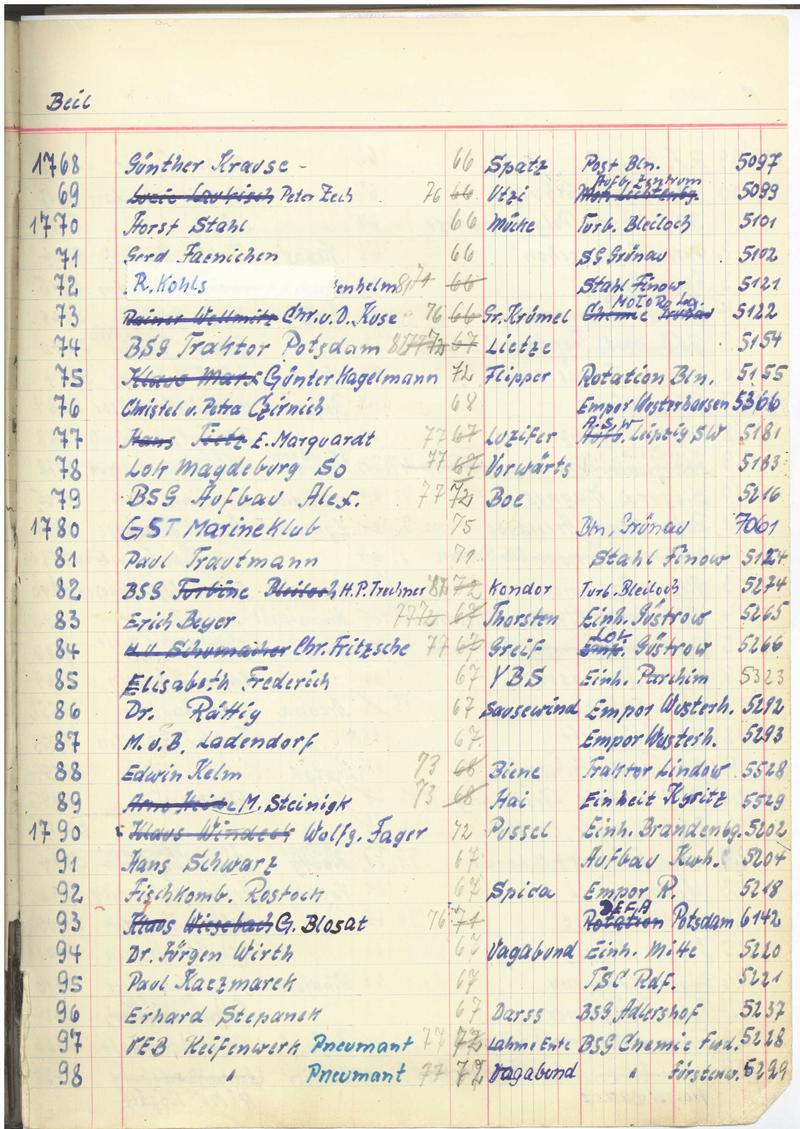 Beil
1768 Günther Krause - 66 Spatz Post Bln. 5097
69 Peter Zech 76 66 Utzi Aufb. Zentrum 5099
1770 Horst Stahl 66 Mücke Turb. Bleiloch 5101
71 Gerd Jaenichen 66 SG Grünau 5102
72 R. Kohls enhelm 71 66 Stahl Finow 5121
73 Rainer Wellmitz Chr. u. D. Kuse 76 66 Gr. Krümel Chemie 5122
74 BSG Traktor Potsdam 67 Lietze 5154
75 Klaus Mars Günter Hagelmann 72 Flipper Rotation Bln. 5155
76 Christel u. Petra Czirnich 68 Empor Wusterhausen 5366
77 Hans Tietz E. Marquardt 77 67 Luzifer Leipzig SW 5181
78 Lok Magdeburg So 77 67 Vorwärts 5183
79 BSG Aufbau Alex. 77 72 Boe 5216
1780 GST Marineklub 75 Bln. Grünau 7061
81 Paul Trautmann 71 Stahl Finow 5124
82 BSG Turbine Bleiloch H.P. Trechner 87 72 Kondor Turb. Bleiloch 5274
83 Erich Beyer 77 72 67 Thorsten Einh. Güstrow 5265
84 H. u. Schumacher Chr. Fritzsche 77 67 Greif Lok Einh. Güstrow 5266
85 Elisabeth Frederich 67 YBS Einh. Parchim 5323
86 Dr. Rättig 67 Sausewind Empor Wusterh. 5292
87 M. u. B. Ladendorf 67. Empor Wusterh. 5293
88 Edwin Kelm 73 68 Biene Traktor Lindow 5528
89 M. Steinigk 73 68 Hai Einheit Kyritz 5529
1790 Klaus Windeck Wolfg. Jager 72 Pussel Einh. Brandenbg. 5202
91 Hans Schwarz 67 Aufbau Kwh. 5204
92 Fischkomb. Rostock 67 Spida Empor R. 5218
93 Klaus Wiesebach G. Blosat 76 71 DEFA Rotation Potsdam 6142
94 Dr. Jürgen Wirth 67 Vagabund Einh. Mitte 5220
95 Paul Kaczmarek 67 TSC Rdf. 5221
96 Erhard Stepanek 67 Darss BSG Adlershof 5237
97 VEB Reifenwerk Pneumant 77 72 Lahme Ente BSG Chemie Fwd. 5228
98 " Pneumant 77 72 Vagabund " Fürstenw. 5299